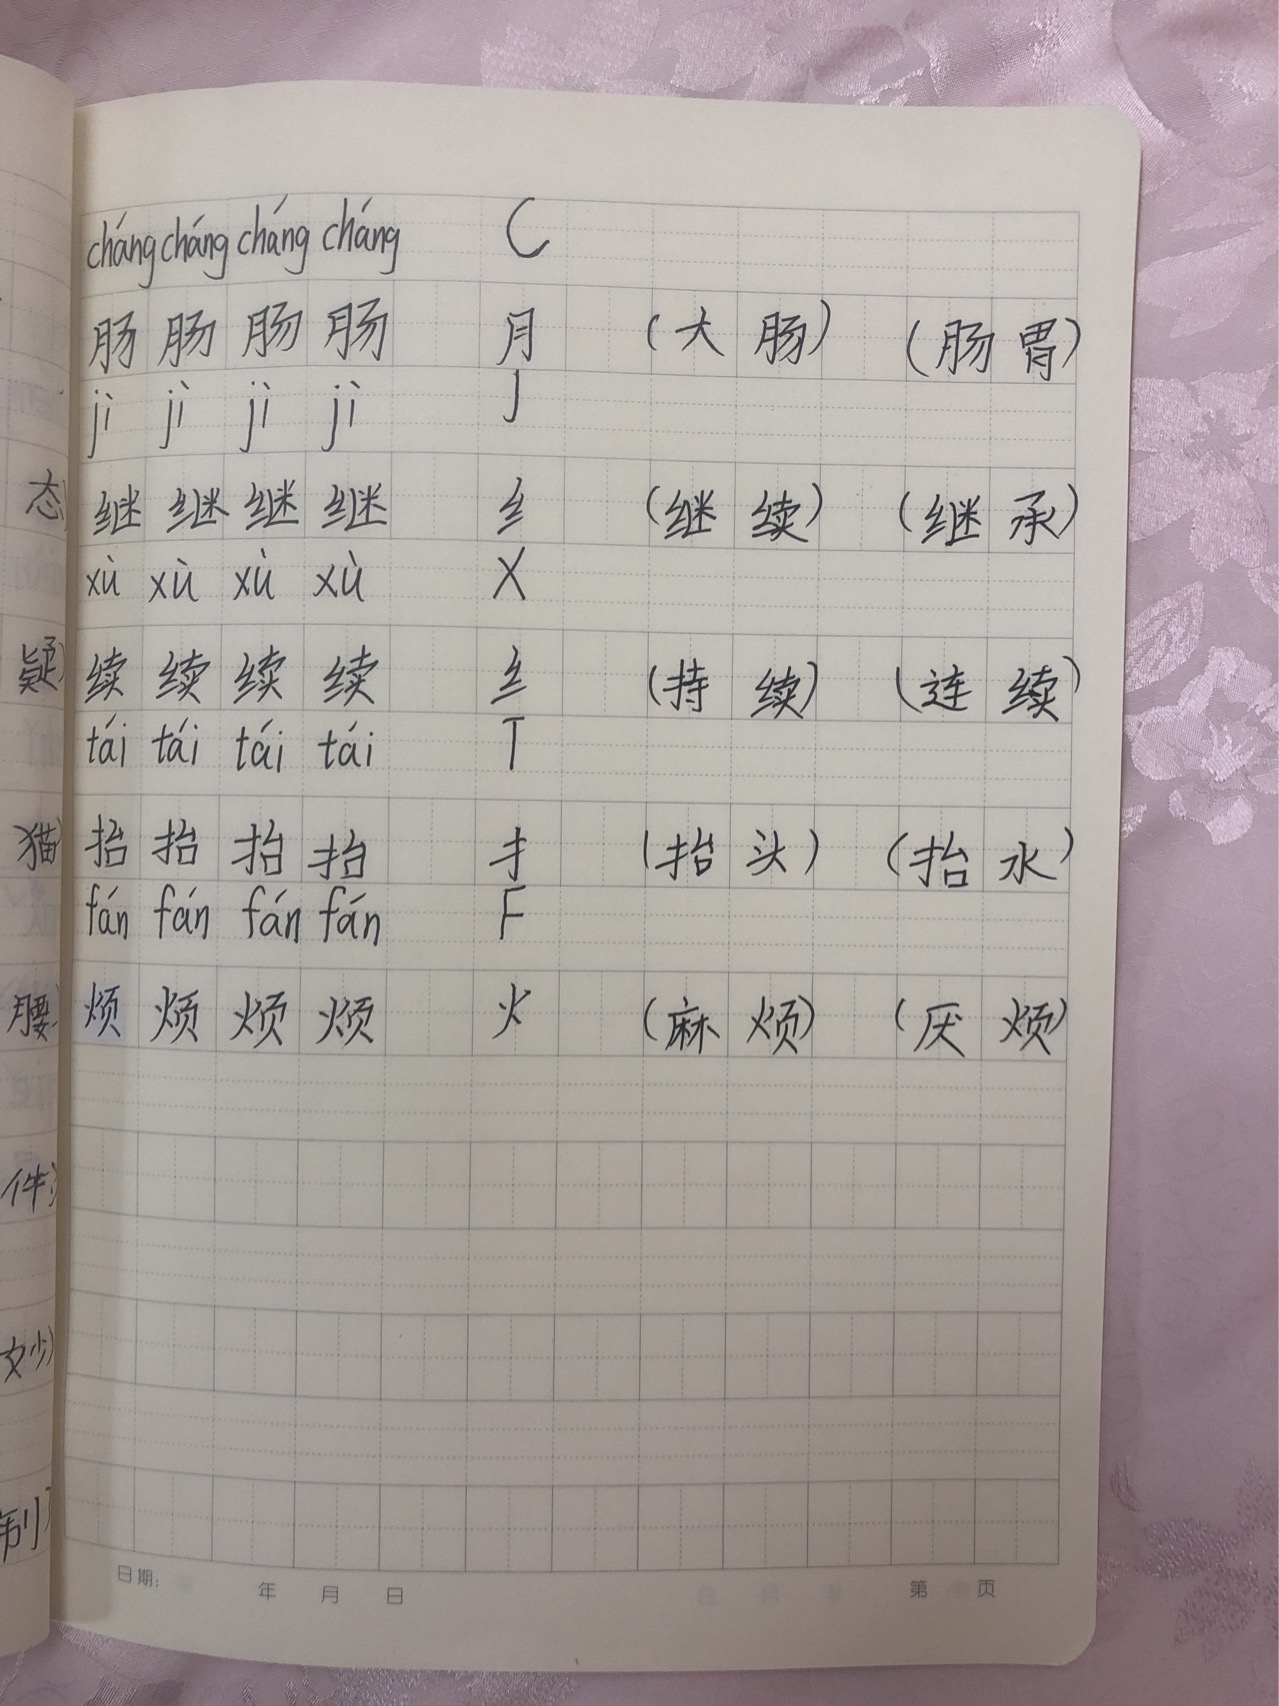 cháng cháng cháng cháng C
肠 肠 肠 肠 月 (大肠) (肠胃)
jì jì jì jì J
态) 继 继 继 继 纟 (继续) (继承)
xù xù xù xù X
疑) 续 续 续 续 纟 (持续) (连续)
tái tái tái tái T
猫) 抬 抬 抬 抬 扌 (抬头) (抬水)
fán fán fán fán F
腰) 烦 烦 烦 烦 火 (麻烦) (厌烦)
件)
妙)
制)
日期: 年 月 日 第 页